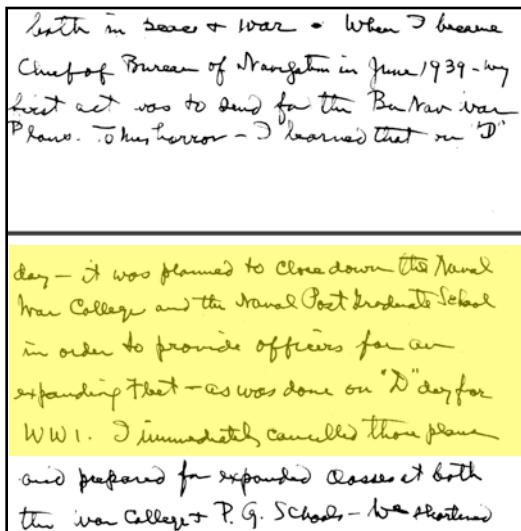 both in peace + war. When I became
Chief of Bureau of Navigation in June 1939 - my
first act was to send for the BuNav war
Plans. To my horror - I learned that on "D"
day - it was planned to close down the Naval
War College and the Naval Post Graduate School
in order to provide officers for an
expanding Fleet - as was done on "D" day for
WW1. I immediately cancelled those plans
and prepared for expanded classes at both
the War College + P.G. Schools - We shortened